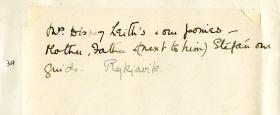 Mrs Disney Leith's & our ponies –
Mother, Father (& next to him) Stefán our
guide. Reykjavik.
34